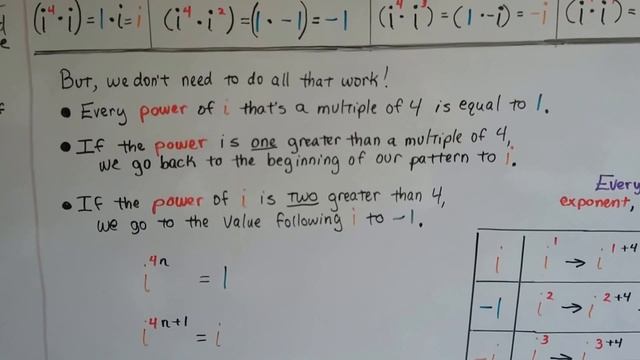 (i⁴·i)=1·i=i (i⁴·i²)=(1·-1)=-1 (i⁴·i³)=(1·-i)=-i
But, we don't need to do all that work!
• Every power of i that's a multiple of 4 is equal to 1.
• If the power is one greater than a multiple of 4,
we go back to the beginning of our pattern to i.
• If the power of i is two greater than 4,
we go to the value following i to -1.
i⁴ⁿ = 1
i⁴ⁿ⁺¹ = i
Every
exponent,
i i¹ → i¹⁺⁴
-1 i² → i²⁺⁴
-i i³ → i³⁺⁴